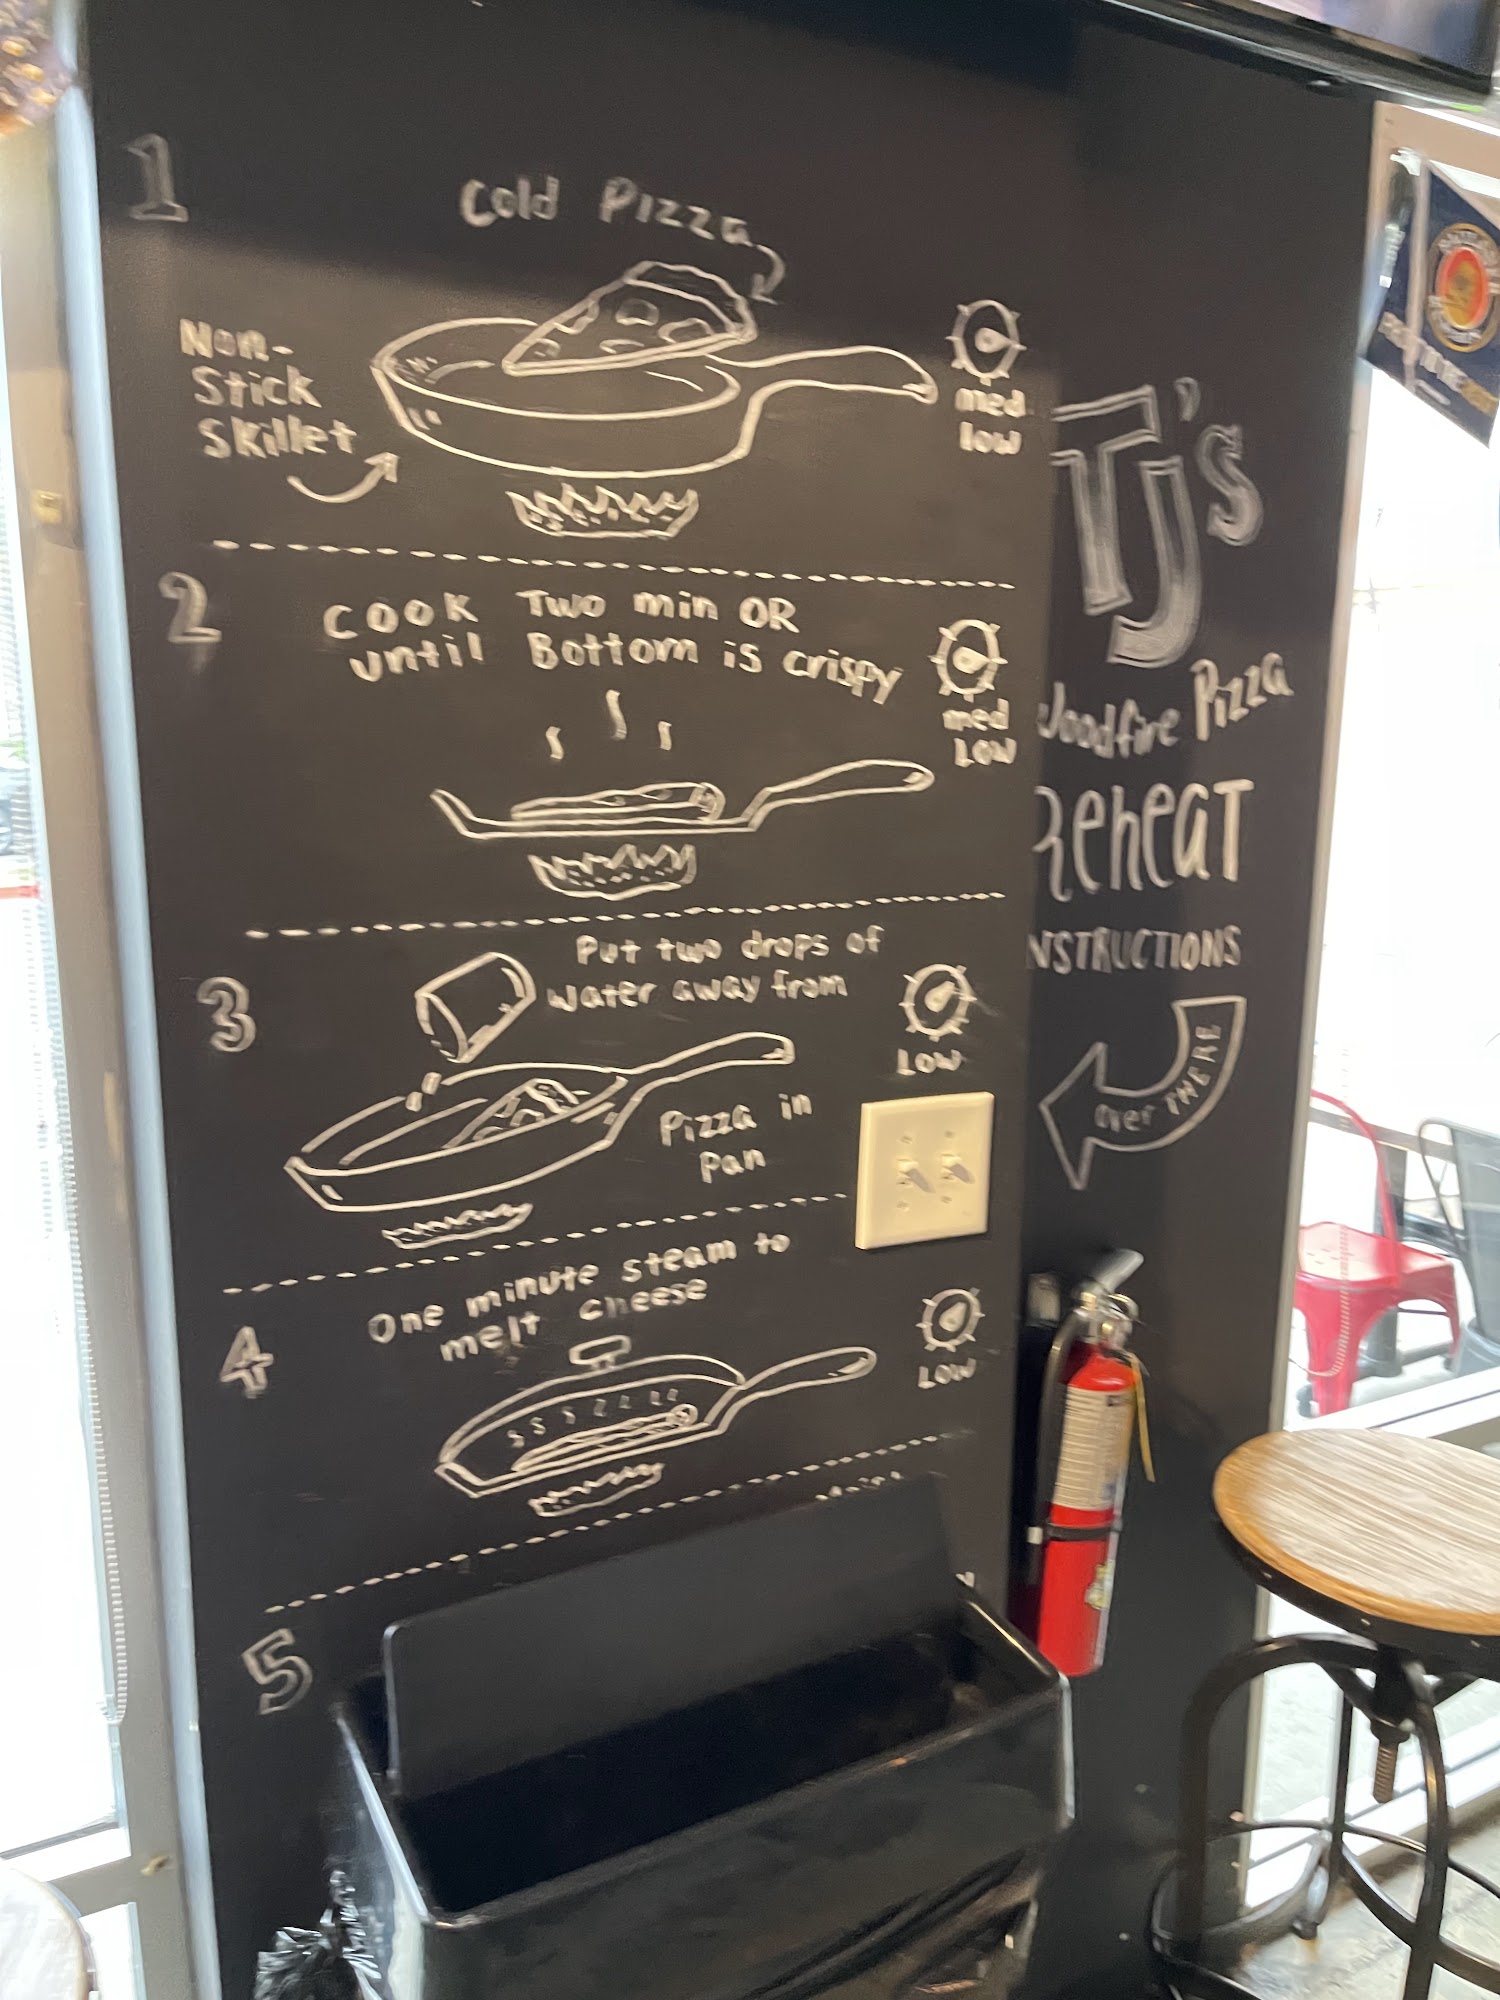 1
Cold Pizza
Non-
Stick
Skillet
med
low
2
Cook Two min OR
until Bottom is crispy
med
Low
3
Put two drops of
water away from
Pizza in
Pan
Low
4
One minute steam to
melt cheese
Low
5
TJ's
Woodfire Pizza
Reheat
INSTRUCTIONS
over THERE